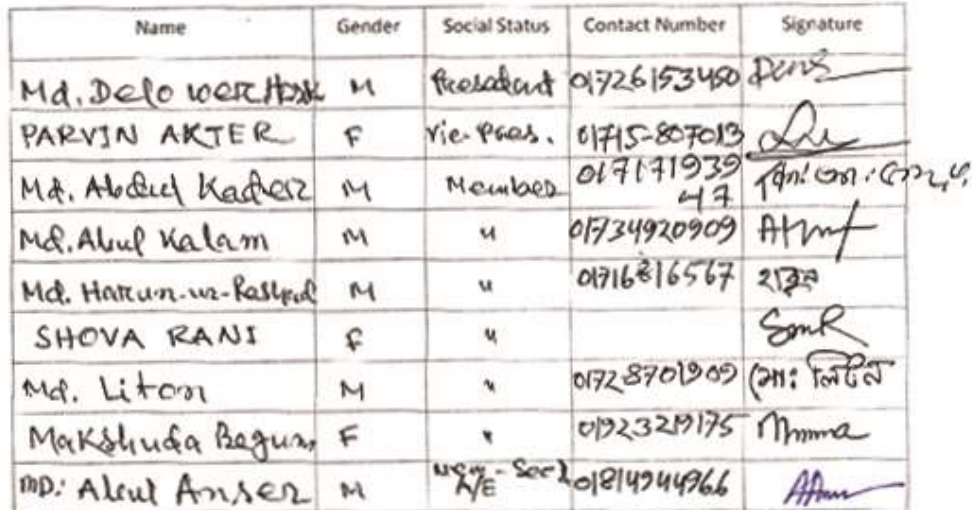 Name Gender Social Status Contact Number Signature
Md. Delo wer M President 01726153450
PARVIN AKTER F Vic-Pres. 01715-807013
Md. Abdul Kader M Member 017171939
47
Md. Abul Kalam M " 01734920909
Md. Harun-ur-Rashid M " 01716816567 হারুন
SHOVA RANI F "
Md. Liton M " 01728701909 মোঃ লিটন
Makshuda Begum F " 01923219175
MD. Abul Anser M 01814944966